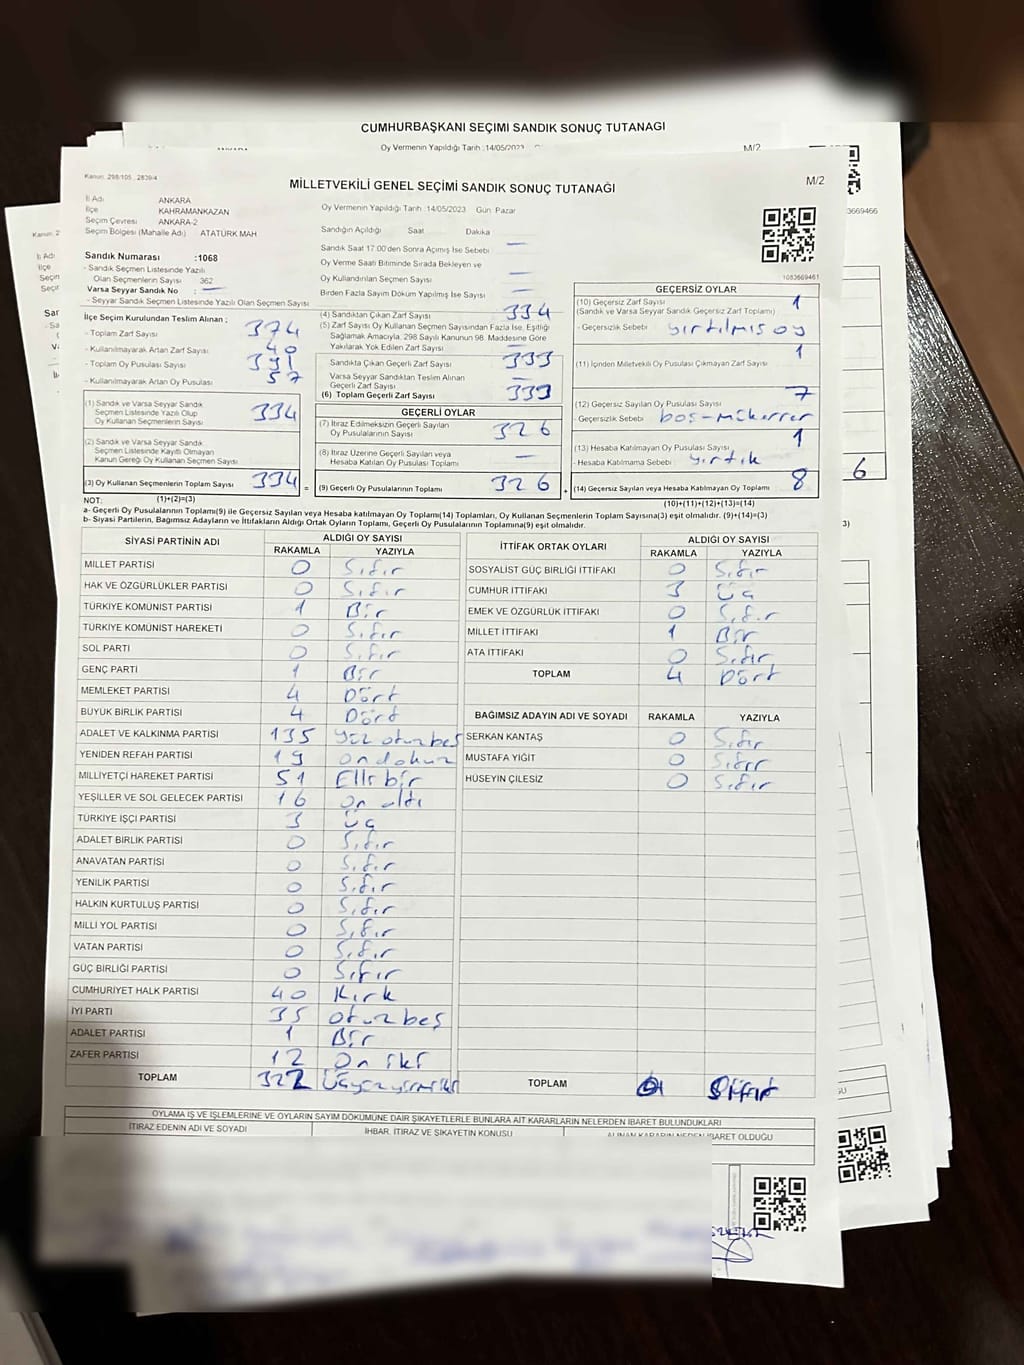 CUMHURBAŞKANI SEÇİMİ SANDIK SONUÇ TUTANAGI
Oy Vermenin Yapıldığı Tarih :14/05/2023
M/2
Kanun: 298/105 , 2839/4
MİLLETVEKİLİ GENEL SEÇİMİ SANDIK SONUÇ TUTANAĞI
M/2
İl Adı ANKARA
İlçe KAHRAMANKAZAN
Seçim Çevresi ANKARA-2
Seçim Bölgesi (Mahalle Adı) ATATÜRK MAH
Oy Vermenin Yapıldığı Tarih :14/05/2023 Gün Pazar
Sandığın Açıldığı Saat Dakika
Sandık Saat 17:00'den Sonra Açımış İse Sebebi —
Oy Verme Saati Bitiminde Sırada Bekleyen ve
Oy Kullandırılan Seçmen Sayısı —
Birden Fazla Sayım Döküm Yapılmış İse Sayısı —
1083669461
Sandık Numarası :1068
- Sandık Seçmen Listesinde Yazılı
Olan Seçmenlerin Sayısı 362
Varsa Seyyar Sandık No : —
- Seyyar Sandık Seçmen Listesinde Yazılı Olan Seçmen Sayısı
İlçe Seçim Kurulundan Teslim Alınan ;
- Toplam Zarf Sayısı 374
- Kullanılmayarak Artan Zarf Sayısı 40
- Toplam Oy Pusulası Sayısı 391
- Kullanılmayarak Artan Oy Pusulası 57
(1) Sandık ve Varsa Seyyar Sandık
Seçmen Listesinde Yazılı Olup
Oy Kullanan Seçmenlerin Sayısı 334
(2) Sandık ve Varsa Seyyar Sandık
Seçmen Listesinde Kayıtlı Olmayan
Kanun Gereği Oy Kullanan Seçmen Sayısı
(3) Oy Kullanan Seçmenlerin Toplam Sayısı 334 =
(4) Sandıktan Çıkan Zarf Sayısı 334
(5) Zarf Sayısı Oy Kullanan Seçmen Sayısından Fazla İse, Eşitliği
Sağlamak Amacıyla, 298 Sayılı Kanunun 98. Maddesine Göre
Yakılarak Yok Edilen Zarf Sayısı —
Sandıkta Çıkan Geçerli Zarf Sayısı 333
Varsa Seyyar Sandıktan Teslim Alınan
Geçerli Zarf Sayısı —
(6) Toplam Geçerli Zarf Sayısı 333
GEÇERLİ OYLAR
(7) İtiraz Edilmeksizin Geçerli Sayılan
Oy Pusulalarının Sayısı 326
(8) İtiraz Üzerine Geçerli Sayılan veya
Hesaba Katılan Oy Pusulası Toplamı —
(9) Geçerli Oy Pusulalarının Toplamı 326 +
GEÇERSİZ OYLAR
(10) Geçersiz Zarf Sayısı 1
(Sandık ve Varsa Seyyar Sandık Geçersiz Zarf Toplamı)
- Geçersizlik Sebebi yırtılmış oy
(11) İçinden Milletvekili Oy Pusulası Çıkmayan Zarf Sayısı 1
(12) Geçersiz Sayılan Oy Pusulası Sayısı 7
- Geçersizlik Sebebi boş-mükerrer
(13) Hesaba Katılmayan Oy Pusulası Sayısı 1
- Hesaba Katılmama Sebebi yırtık
(14) Geçersiz Sayılan veya Hesaba Katılmayan Oy Toplamı 8
6
NOT: (1)+(2)=(3)
(10)+(11)+(12)+(13)=(14)
a- Geçerli Oy Pusulalarının Toplamı(9) ile Geçersiz Sayılan veya Hesaba katılmayan Oy Toplamı(14) Toplamları, Oy Kullanan Seçmenlerin Toplam Sayısına(3) eşit olmalıdır. (9)+(14)=(3)
b- Siyasi Partilerin, Bağımsız Adayların ve İttifakların Aldığı Ortak Oyların Toplamı, Geçerli Oy Pusulalarının Toplamına(9) eşit olmalıdır.
SİYASİ PARTİNİN ADI ALDIĞI OY SAYISI
RAKAMLA YAZIYLA
MİLLET PARTİSI 0 Sıfır
HAK VE ÖZGÜRLÜKLER PARTİSİ 0 Sıfır
TÜRKİYE KOMÜNİST PARTİSİ 1 Bir
TÜRKİYE KOMÜNİST HAREKETİ 0 Sıfır
SOL PARTİ 0 Sıfır
GENÇ PARTİ 1 Bir
MEMLEKET PARTİSİ 4 Dört
BÜYÜK BİRLİK PARTİSİ 4 Dört
ADALET VE KALKINMA PARTİSİ 135 yüz otuzbeş
YENİDEN REFAH PARTİSİ 19 ondokuz
MİLLİYETÇİ HAREKET PARTİSİ 51 Ellibir
YEŞİLLER VE SOL GELECEK PARTİSİ 16 On altı
TÜRKİYE İŞÇİ PARTİSİ 3 Üç
ADALET BİRLİK PARTİSİ 0 Sıfır
ANAVATAN PARTİSİ 0 Sıfır
YENİLİK PARTİSİ 0 Sıfır
HALKIN KURTULUŞ PARTİSİ 0 Sıfır
MİLLİ YOL PARTİSİ 0 Sıfır
VATAN PARTİSİ 0 Sıfır
GÜÇ BİRLİĞİ PARTİSİ 0 Sıfır
CUMHURİYET HALK PARTİSİ 40 Kırk
İYİ PARTİ 35 otuzbeş
ADALET PARTİSİ 1 Bir
ZAFER PARTİSİ 12 On iki
TOPLAM 322 Üçyüzyirmiiki
İTTİFAK ORTAK OYLARI ALDIĞI OY SAYISI
RAKAMLA YAZIYLA
SOSYALİST GÜÇ BİRLİĞİ İTTİFAKI 0 Sıfır
CUMHUR İTTİFAKI 3 Üç
EMEK VE ÖZGÜRLÜK İTTİFAKI 0 Sıfır
MİLLET İTTİFAKI 1 Bir
ATA İTTİFAKI 0 Sıfır
TOPLAM 4 Dört
BAĞIMSIZ ADAYIN ADI VE SOYADI RAKAMLA YAZIYLA
SERKAN KANTAŞ 0 Sıfır
MUSTAFA YİĞİT 0 Sıfır
HÜSEYİN ÇİLESİZ 0 Sıfır
TOPLAM
OYLAMA İŞ VE İŞLEMLERINE VE OYLARIN SAYIM DÖKÜMÜNE DAİR ŞİKAYETLERLE BUNLARA AİT KARARLARIN NELERDEN İBARET BULUNDUKLARI
İTİRAZ EDENİN ADI VE SOYADI
İHBAR, İTİRAZ VE ŞİKAYETİN KONUSU
ALINAN KARARIN NEDEN İBARET OLDUĞU